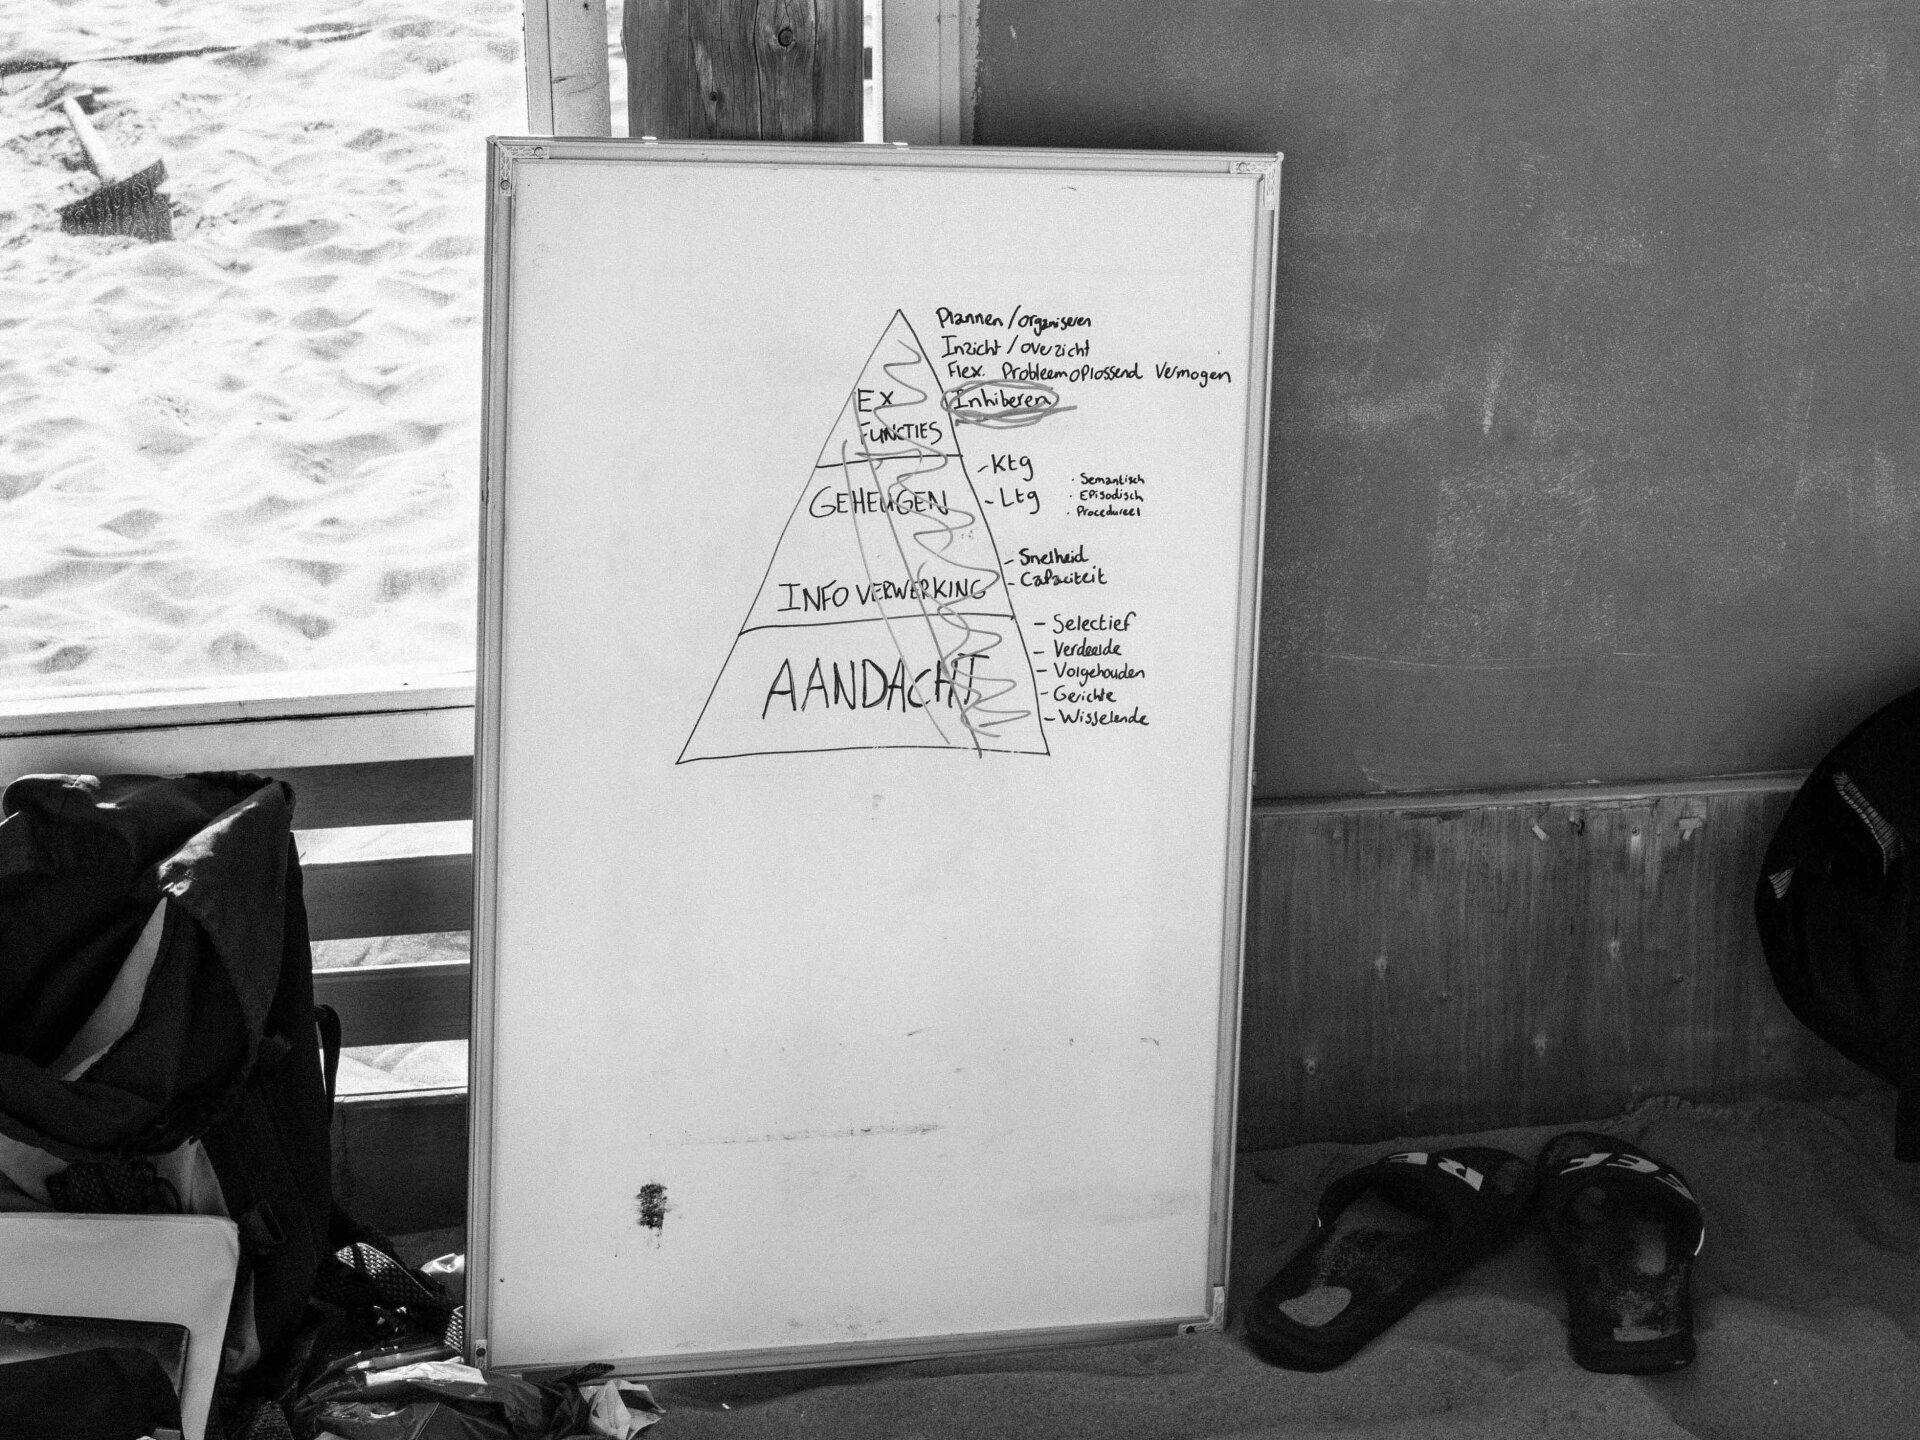 Plannen / organiseren
Inzicht / overzicht
Flex. Probleemoplossend Vermogen
EX
FUNCTIES
Inhiberen
GEHEUGEN
- Ktg
- Ltg
· Semantisch
· Episodisch
· Procedureel
INFO VERWERKING
- Snelheid
- Capaciteit
AANDACHT
- Selectief
- Verdeelde
- Volgehouden
- Gerichte
- Wisselende
REEF